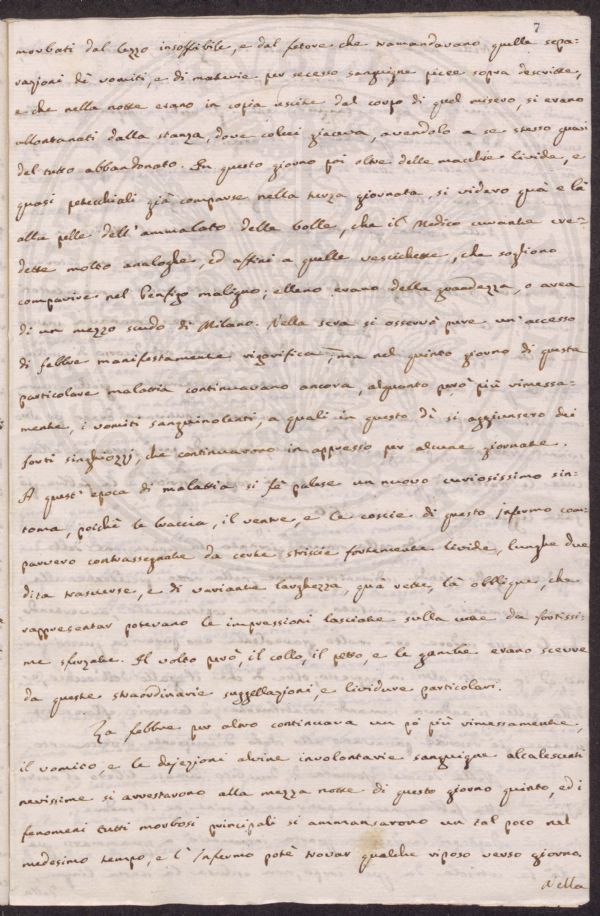 7
morbati dal lezzo insoffribile, e dal fetore che tramandavano quelle sepa-
razioni di vomiti, e di materie per secesso sanguigne picee sopra descritte,
e che nella notte erano in copia uscite dal corpo di quel misero, si erano
allontanati dalla stanza, dove colui giaceva, avendolo a se stesso quasi
del tutto abbandonato. In questo giorno poi oltre delle macchie livide, e
quasi petecchiali già comparse nella terza giornata, si videro quà e là
alla pelle dell'ammalato delle bolle, che il Medico curante cre-
dette molto analoghe, ed affini a quelle vescichette, che sogliono
comparire nel Penfigo maligno; elleno erano della grandezza, o area
di un mezzo scudo di Milano. Nella sera si osservò pure un'accesso
di febbre manifestamente rigorifica; ma nel quinto giorno di questa
particolare malattia continuavano ancora, alquanto però più rimessa-
mente, i vomiti sanguinolenti, a quali in questo dì si aggiunsero dei
forti singhiozzi, che continuarono in appresso per alcune giornate.
A quest'epoca di malattia si fè palese un nuovo curiosissimo sin-
toma, poichè le braccia, il ventre, e le coscie di questo infermo com-
parvero contrassegnate da certe striscie fortemente livide, lunghe due
dita trasverse, e di variante larghezza, quà rette, là obblique, che
rappresentar potevano le impressioni lasciate sulla cute da fortissi-
me sferzate. Il volto però, il collo, il petto, e le gambe erano scevre
da queste straordinarie suggellazioni, e lividure particolari.
La febbre per altro continuava un pò più rimessamente,
il vomito, e le dejezioni alvine involontarie sanguigne alcalescenti
nerissime si arrestarono alla mezza notte di questo giorno quinto, ed i
fenomeni tutti morbosi principali si ammansarono un tal poco nel
medesimo tempo, e l'Infermo potè trovar qualche riposo verso giorno.
Nella